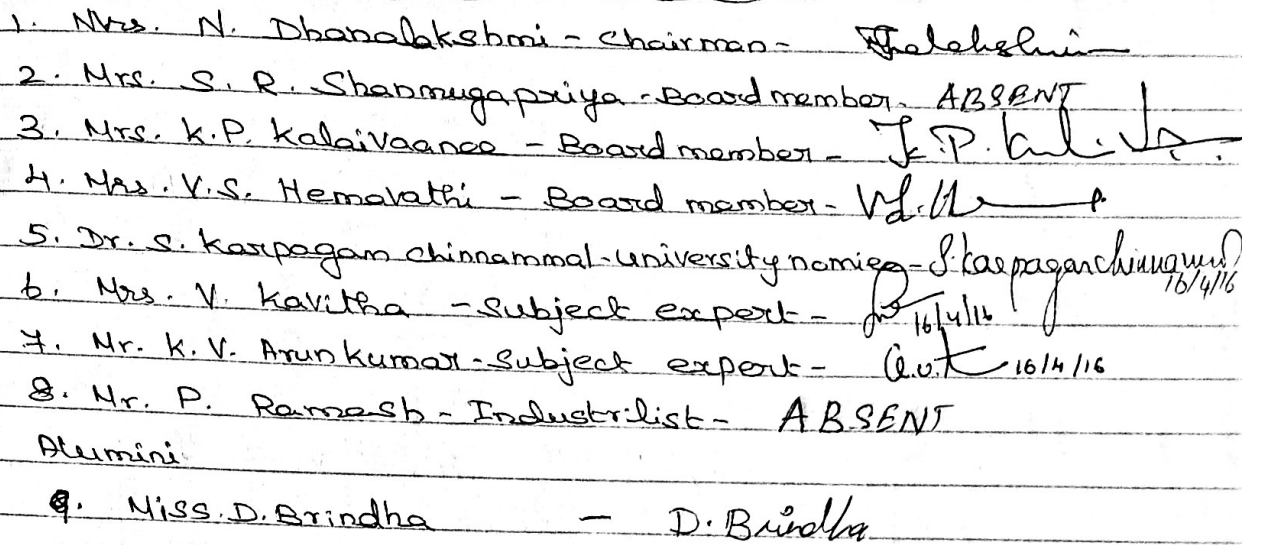 1. Mrs. N. Dhanalakshmi - Chairman -
2. Mrs. S. R. Shanmugapriya - Board member - ABSENT
3. Mrs. K.P. Kalaivaanee - Board member - K.P. Kal
4. Mrs. V.S. Hemavathi - Board member -
5. Dr. S. Karpagam chinnammal - university nominee - S. Karpagamchinnammal 16/4/16
6. Mrs. V. Kavitha - Subject expert - 16/4/16
7. Mr. K. V. Arunkumar - Subject expert - 16/4/16
8. Mr. P. Ramesh - Industrilist - ABSENT
Alumini
9. Miss. D. Brindha - D. Brindha